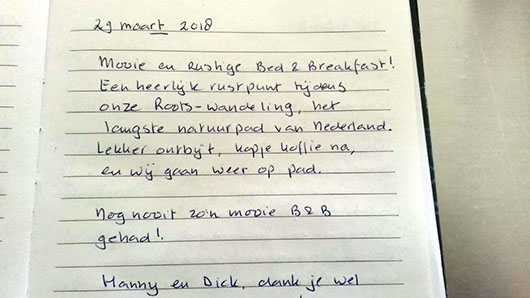 29 maart 2018
Mooie en Rustige Bed & Breakfast!
Een heerlijk rustpunt tijdens
onze Roots-wandeling, het
langste natuurpad van Nederland.
Lekker ontbijt, kopje koffie na,
en wij gaan weer op pad.
Nog nooit zo'n mooie B&B
gehad!
Hanny en Dick, dank je wel